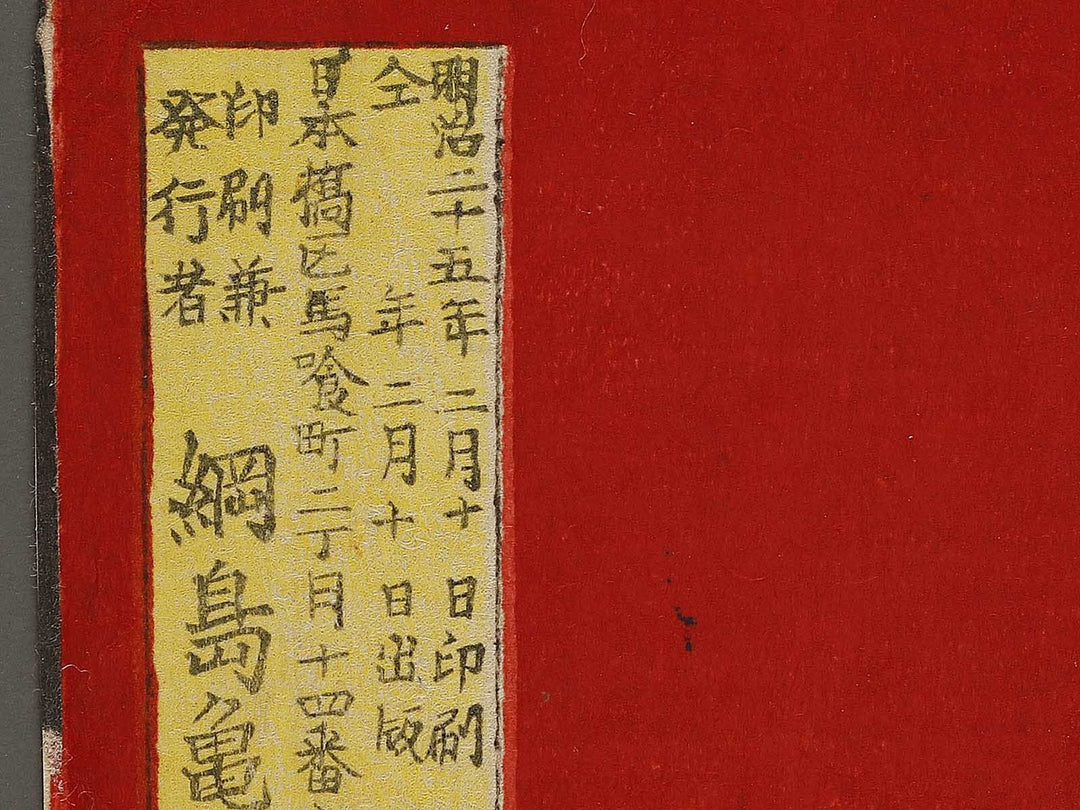 明治二十五年二月十日印刷
仝年二月十日出版
日本橋区馬喰町二丁目十四番
印刷兼
発行者
綱島亀